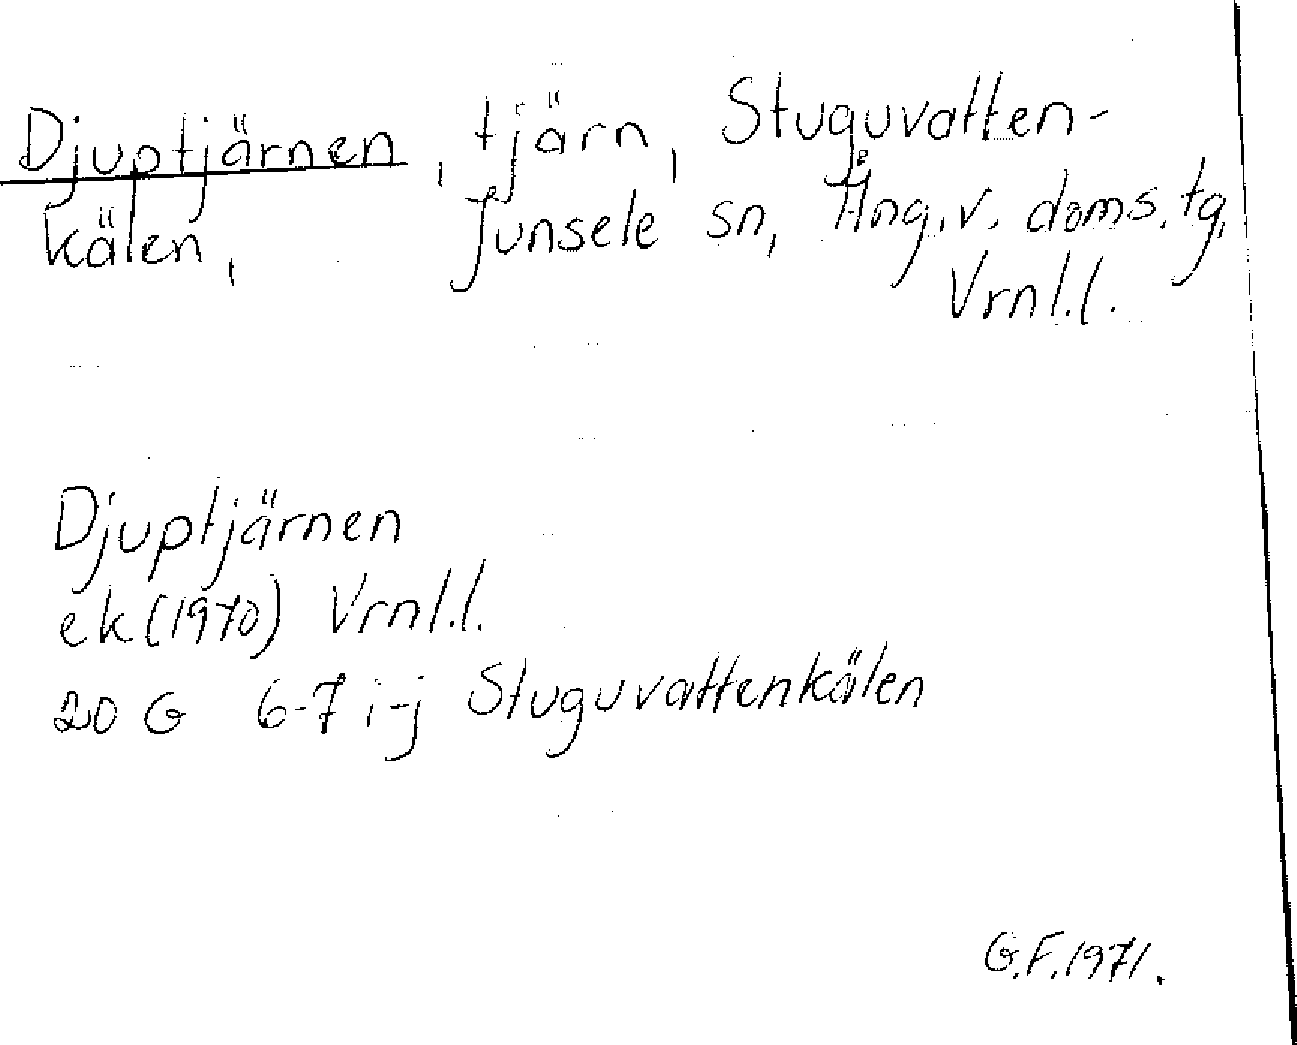 Djuptjärnen, tjärn, Stuguvatten-
kälen, Junsele sn, Ång.v. doms.tg,
Vrnl.l.
Djuptjärnen
ek (1970) Vrnl.l.
20 G 6-7 i-j Stuguvattenkälen
G.F. 1971.